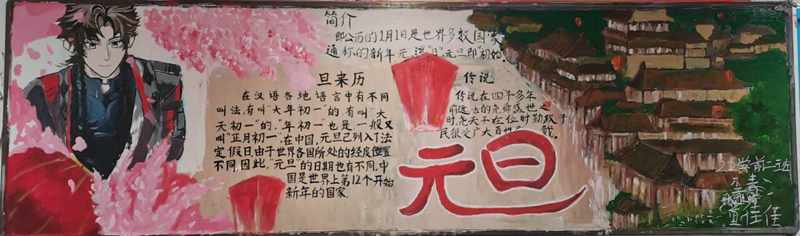 简介
即公历的1月1日是世界多数国家
通称的"新年"元,谓"日"元旦即"初始
旦来历
在汉语各地语言中有不同
叫法,有叫"大年初一"的有叫"大
天初一"的,"年初一也是一般又
叫"正月初一"在中国,元旦已列入了法
定假日由于世界各国所处的经度位置
不同,因此,"元旦"的日期也有不同,中
国是世界上第12个开始
新年的国家
传说
传说在四千多年
前远古的尧舜盛世之
时,尧天子在位时勤政于
民很受广大百姓 戴,
元旦
学前一班
佳佳